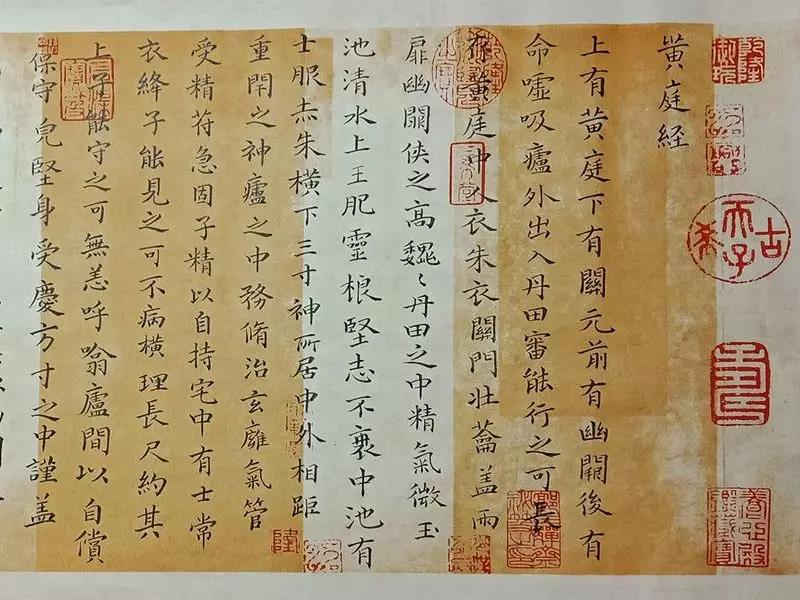 黃庭経
上有黃庭下有關元前有幽闕後有
命噓吸廬外出入丹田審能行之可長
黃庭中人衣朱衣關門壯蘥盖兩
扉幽關俠之髙巍〻丹田之中精氣微玉
池清水上王肥靈根堅志不衰中池有
士服赤朱橫下三寸神所居中外相距
重閇之神廬之中務脩治玄廱氣管
受精苻急固子精以自持宅中有士常
衣絳子能見之可不病橫理長尺約其
上子能守之可無恙呼噏廬間以自償
保守皃堅身受慶方寸之中謹盖
古希天子